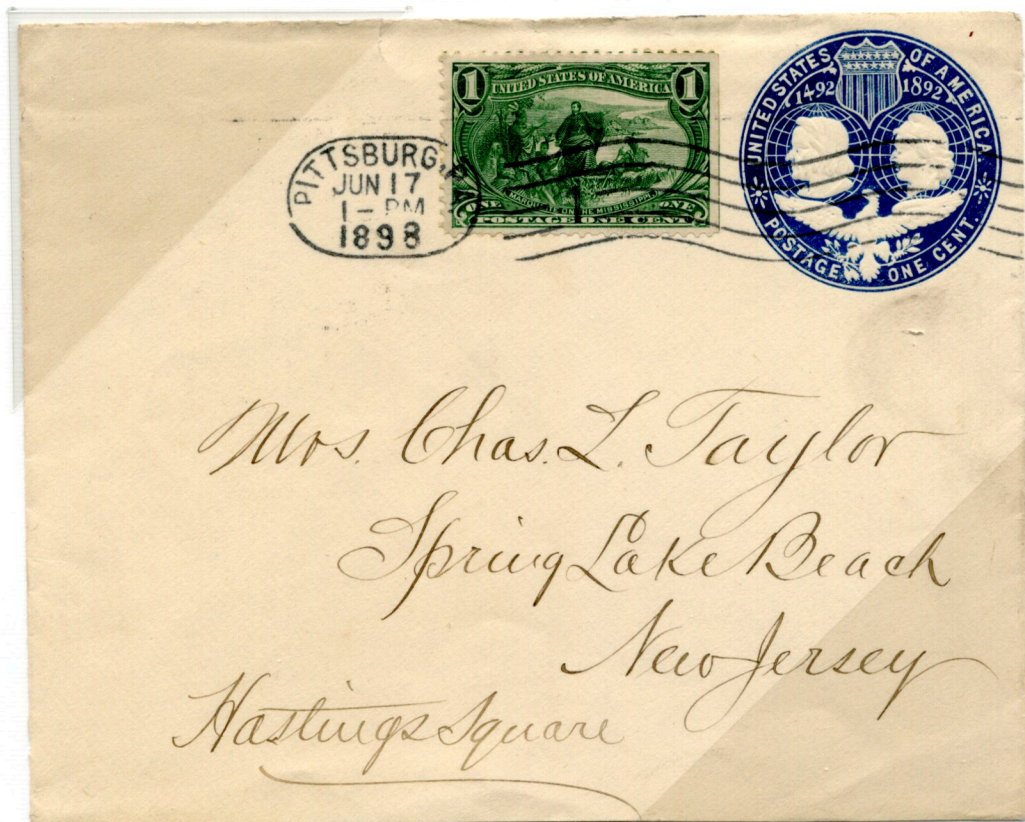 PITTSBURG, P
JUN 17
1 - PM
1898
1 UNITED STATES OF AMERICA 1
MARQUETTE ON THE MISSISSIPPI
ONE ONE
POSTAGE ONE CENT
UNITED STATES OF AMERICA.
1492 1892
POSTAGE ONE CENT.
Mrs. Chas. L. Taylor
Spring Lake Beach
New Jersey
Hastings Square